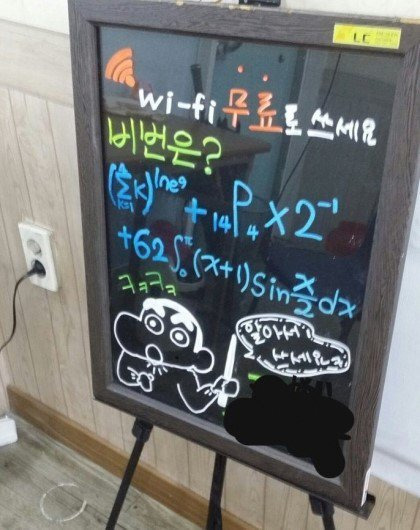 LC
wi-fi 무료로 쓰세요
비번은?
(∑_{k=1}k)^{lne⁹} + ₁₄P₄ × 2⁻¹
+62∫₀^π (x+1)Sin x/2 dx
ㅋㅋㅋ
알아서
쓰세요